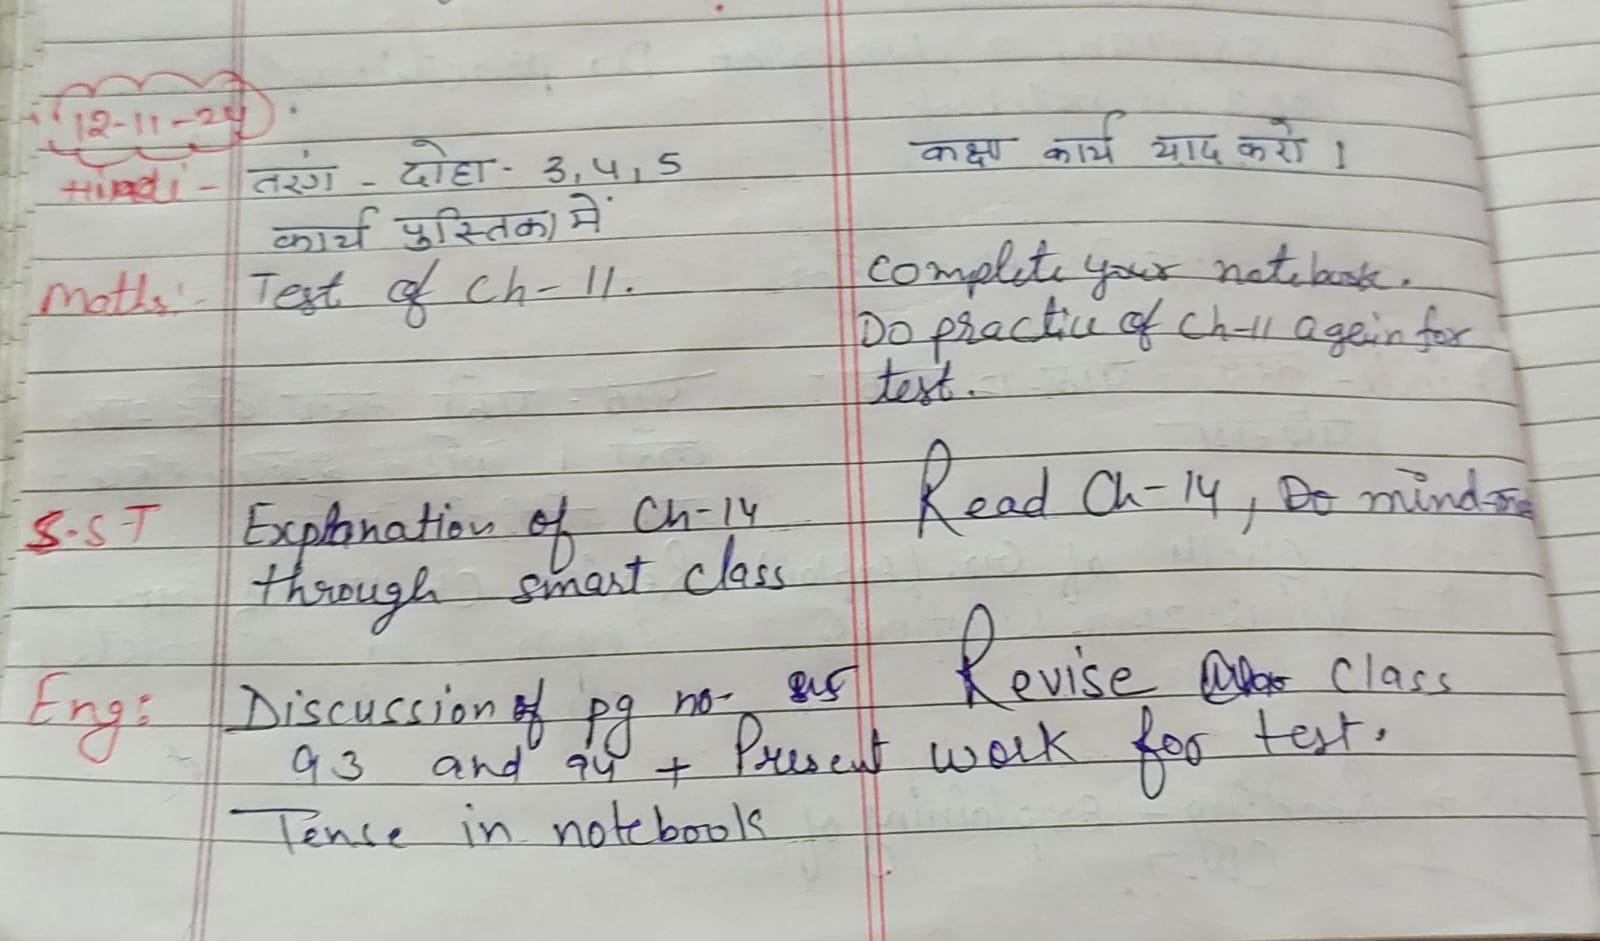 12-11-24
Hindi - तरंग - दोहा - 3, 4, 5
कार्य पुस्तिका में
कक्षा कार्य याद करो ।
Maths:- Test of Ch-11.
Complete your notebook.
Do practice of Ch-11 agein for
test.
S.ST Explanation of Ch-14
through smart class
Read Ch-14, Do mind
Eng: Discussion of pg no-
93 and 94 + Present
Tense in notebook
Revise class
work for test.